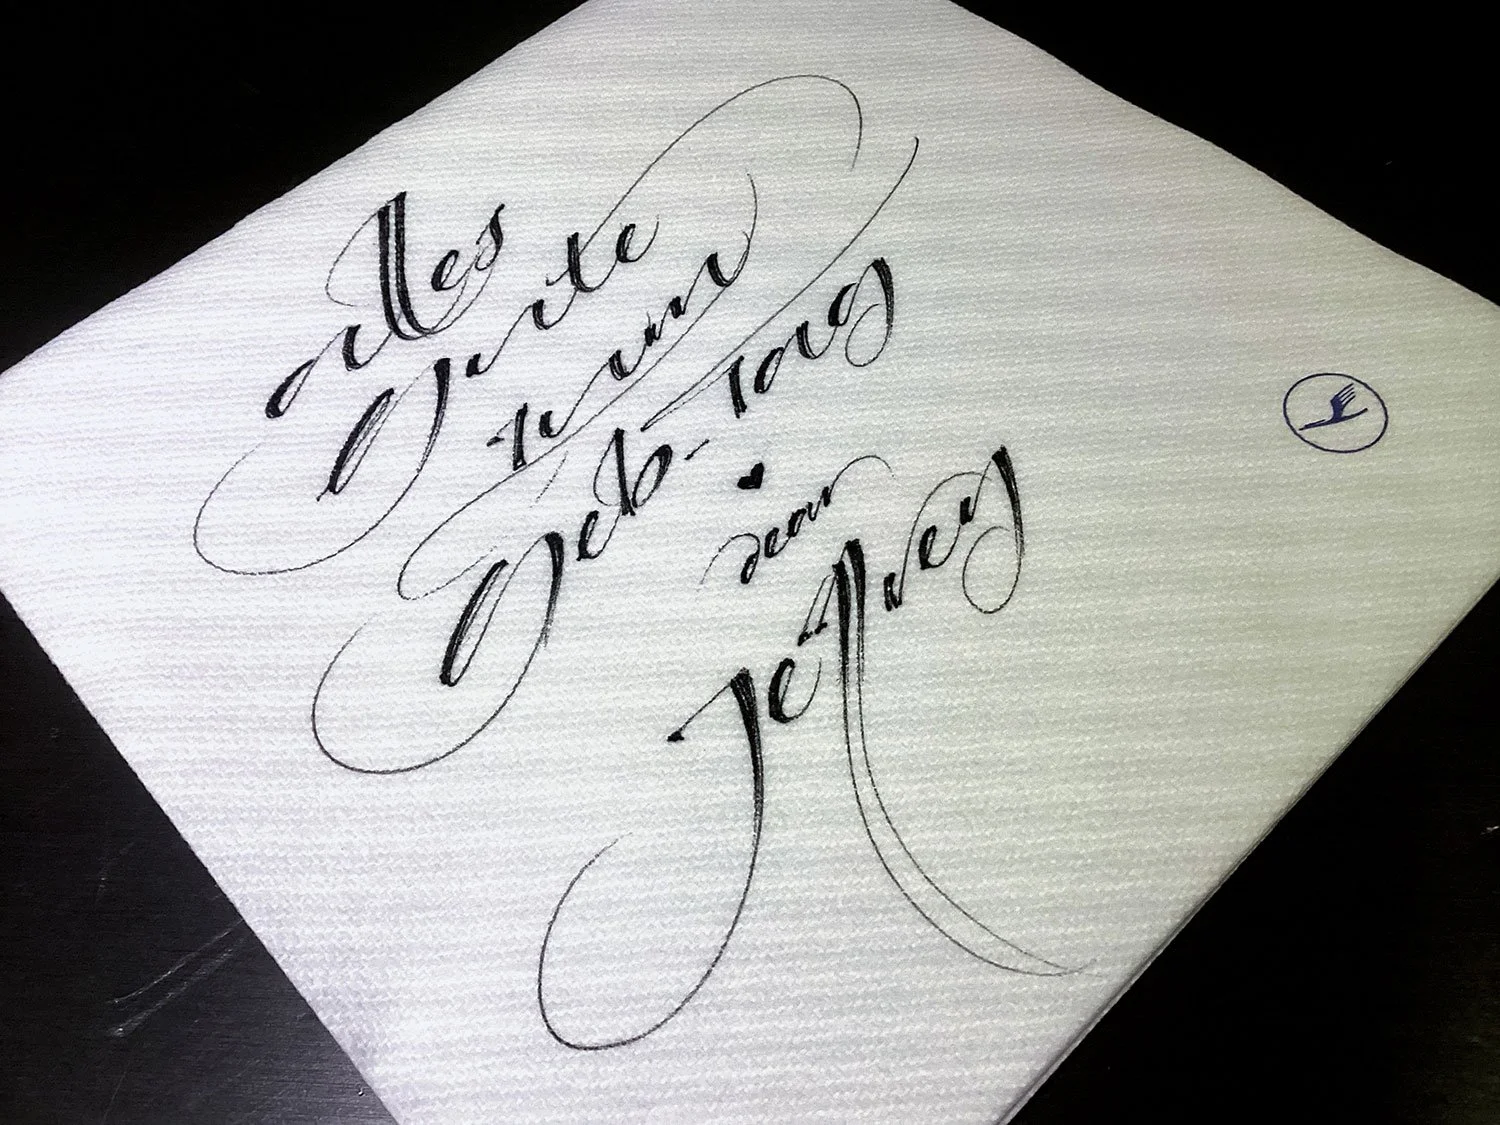 alles
Gute
Geb-Tag
dear
Jeffrey